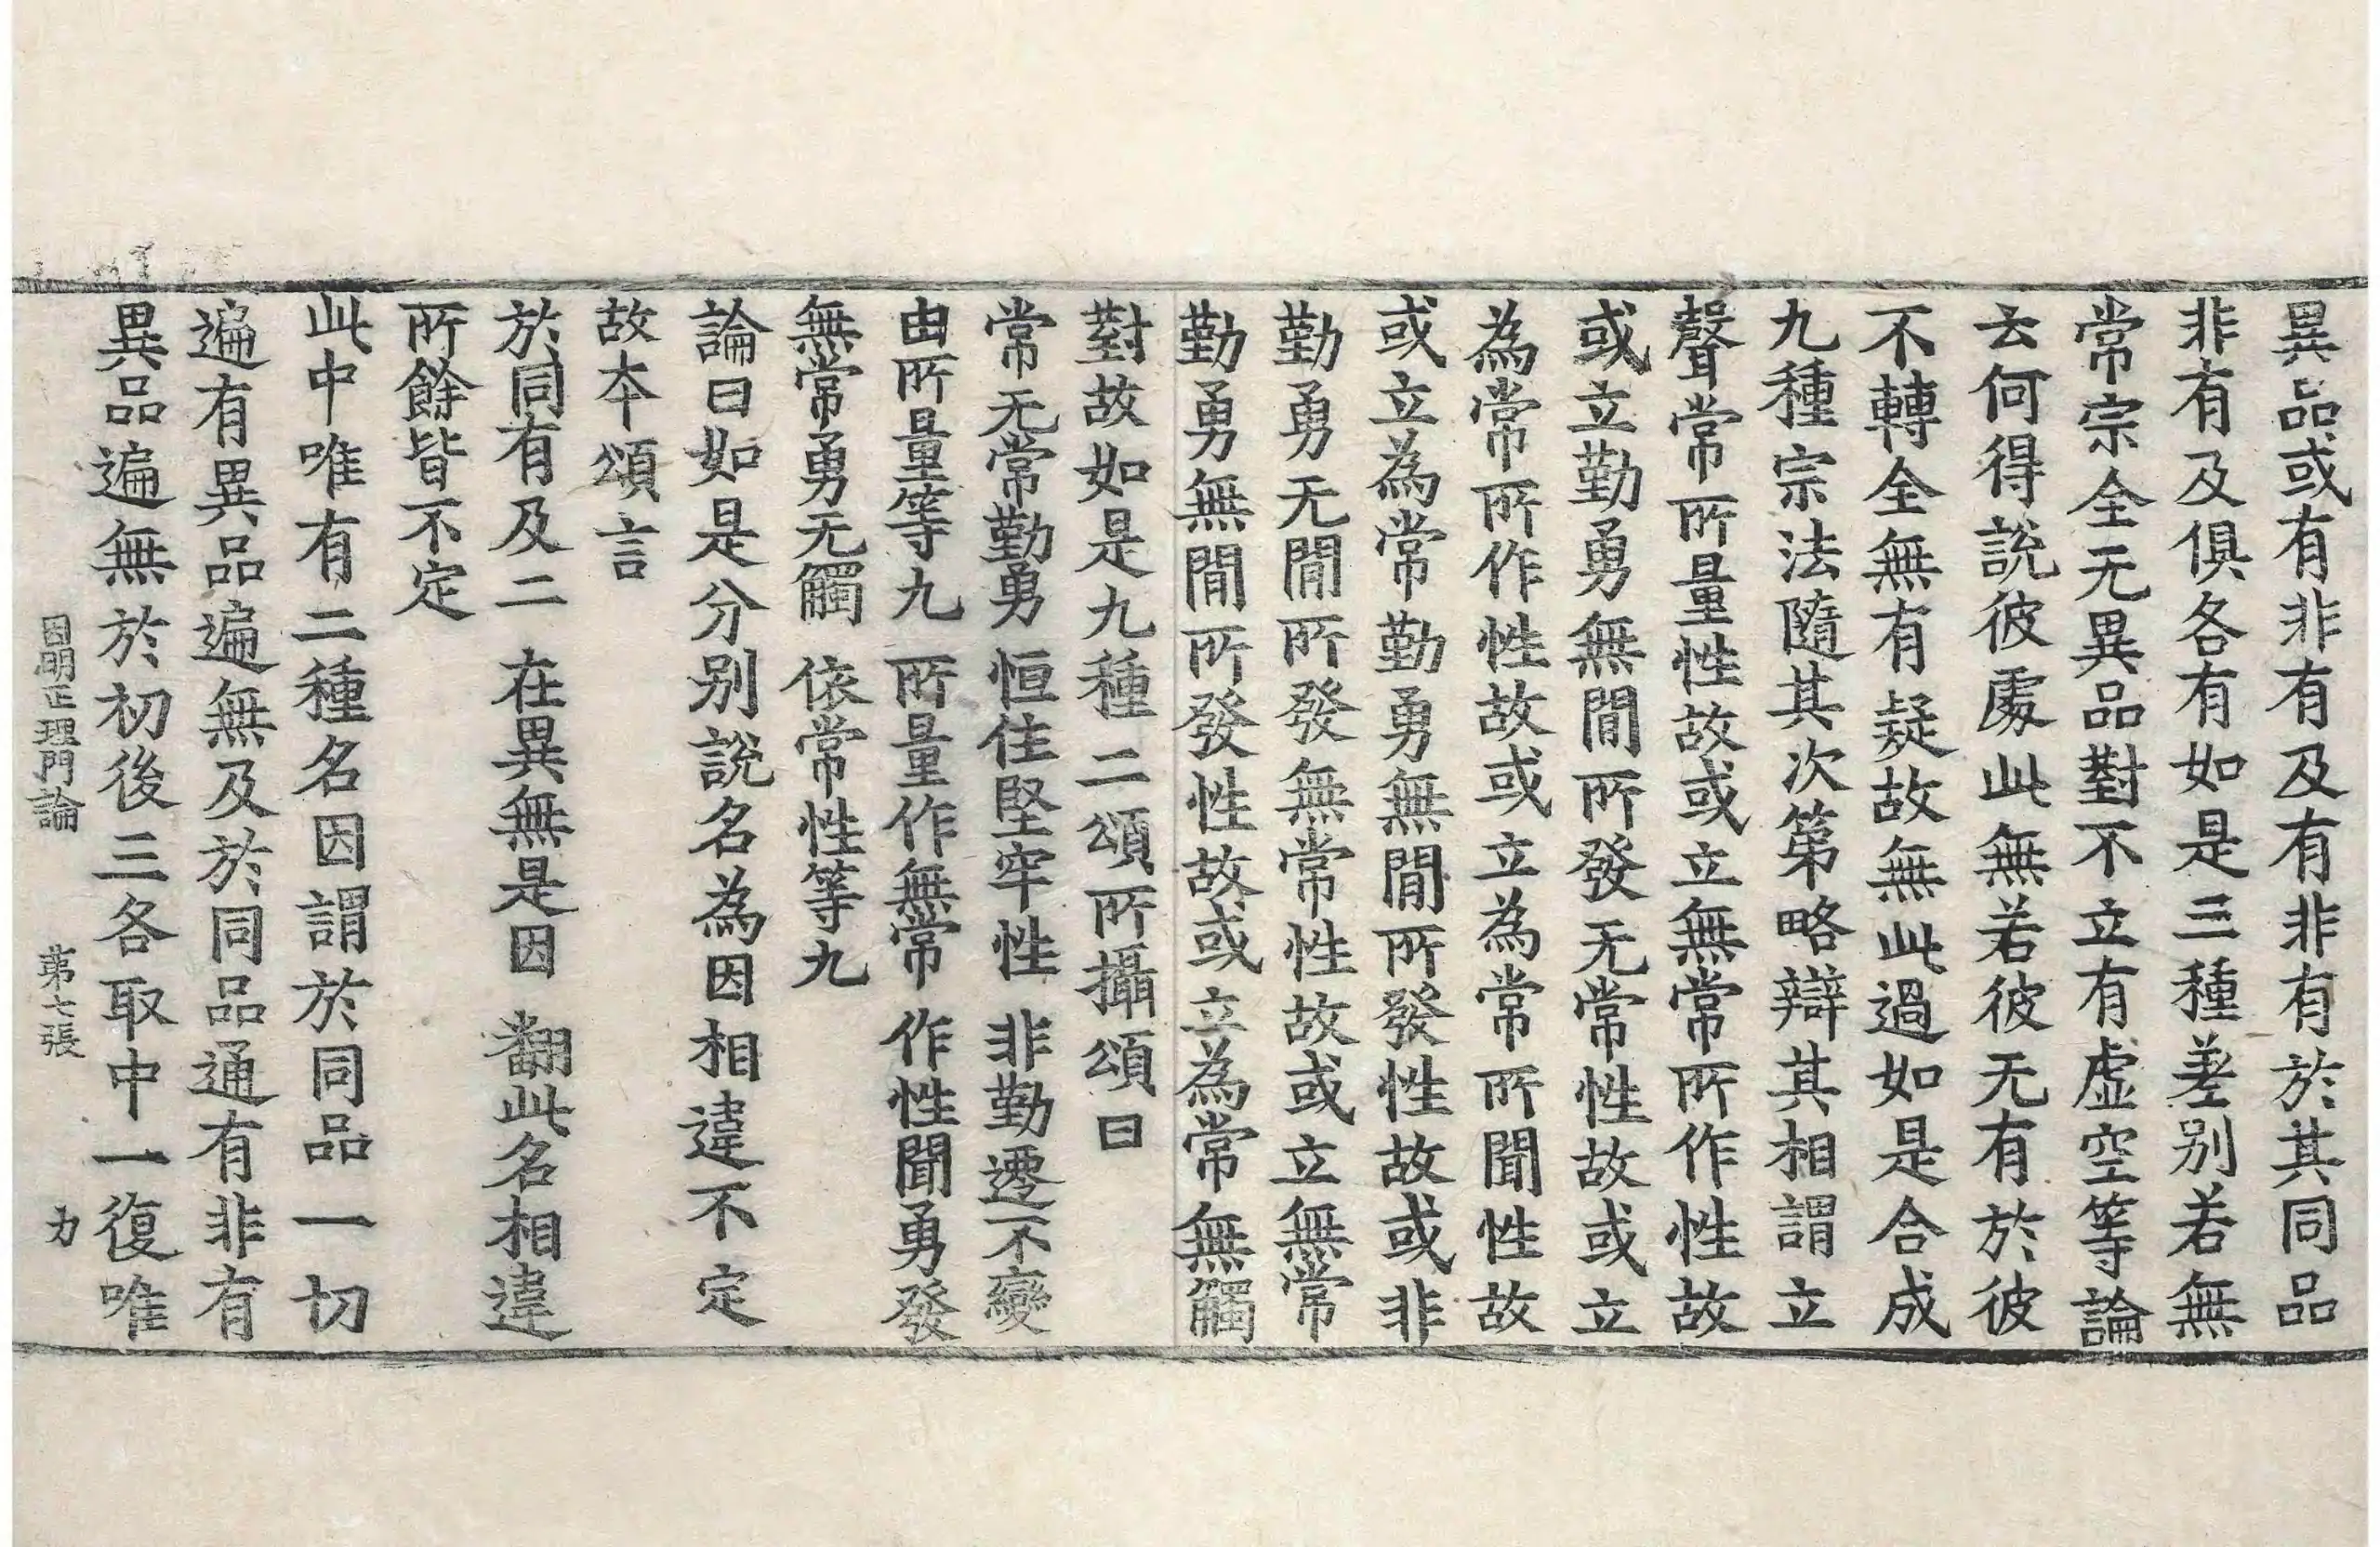 異品或有非有及有非有於其同品
非有及俱各有如是三種差別若無
常宗全无異品對不立有虛空等論
云何得說彼處此無若彼无有於彼
不轉全無有疑故無此過如是合成
九種宗法隨其次第略辯其相謂立
聲常所量性故或立無常所作性故
或立勤勇無閒所發无常性故或立
為常所作性故或立為常所聞性故
或立為常勤勇無閒所發性故或非
勤勇无閒所發無常性故或立無常
勤勇無閒所發性故或立為常無觸
對故如是九種二頌所攝頌曰
常无常勤勇　恒住堅牢性　非勤遷不變
由所量等九　所量作無常　作性聞勇發
無常勇无觸　依常性等九
論曰如是分別說名為因相違不定
故本頌言
於同有及二　在異無是因　翻此名相違
所餘皆不定
此中唯有二種名因謂於同品一切
遍有異品遍無及於同品通有非有
異品遍無於初後三各取中一復唯
因明正理門論　第七張　力